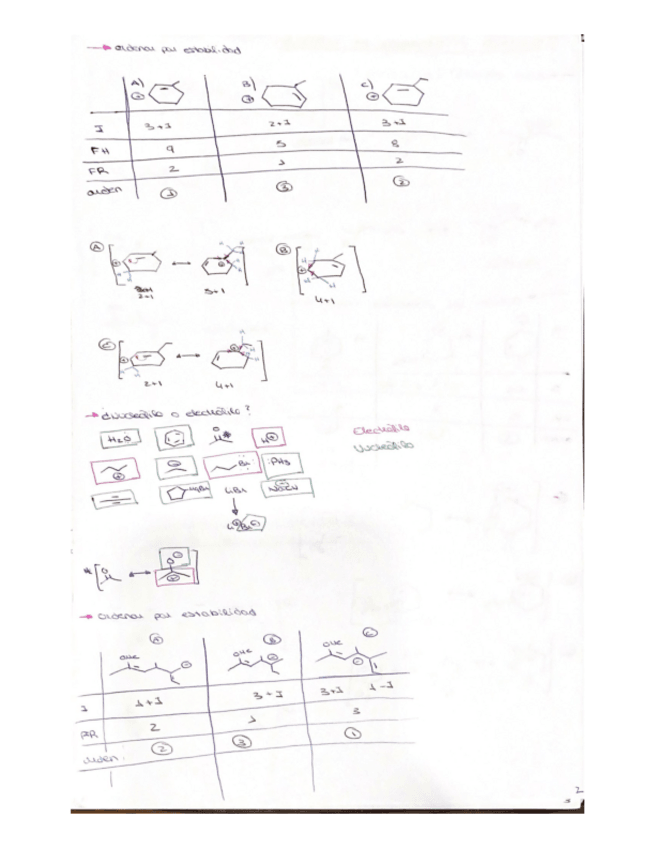 → ordenar por estabilidad
A) B) C)
⊕ ⊕ ⊕
I 3+I 2+I 3+I
FH 9 5 8
FR 2 1 2
orden ① ③ ②
Ⓐ Ⓑ
2+1 5+1 4+1
Ⓒ
2+1 4+1
→ ¿nucleófilo o electrófilo?
H2O H⊕ Electrófilo
Nucleófilo
Br PH3
MgBr LiBr
* O
→ ordenar por estabilidad
Ⓐ Ⓑ Ⓒ
OMe OMe OMe
I 1+I 3+I 3+I 1-I
FR 2 1 3
orden ② ③ ①
2